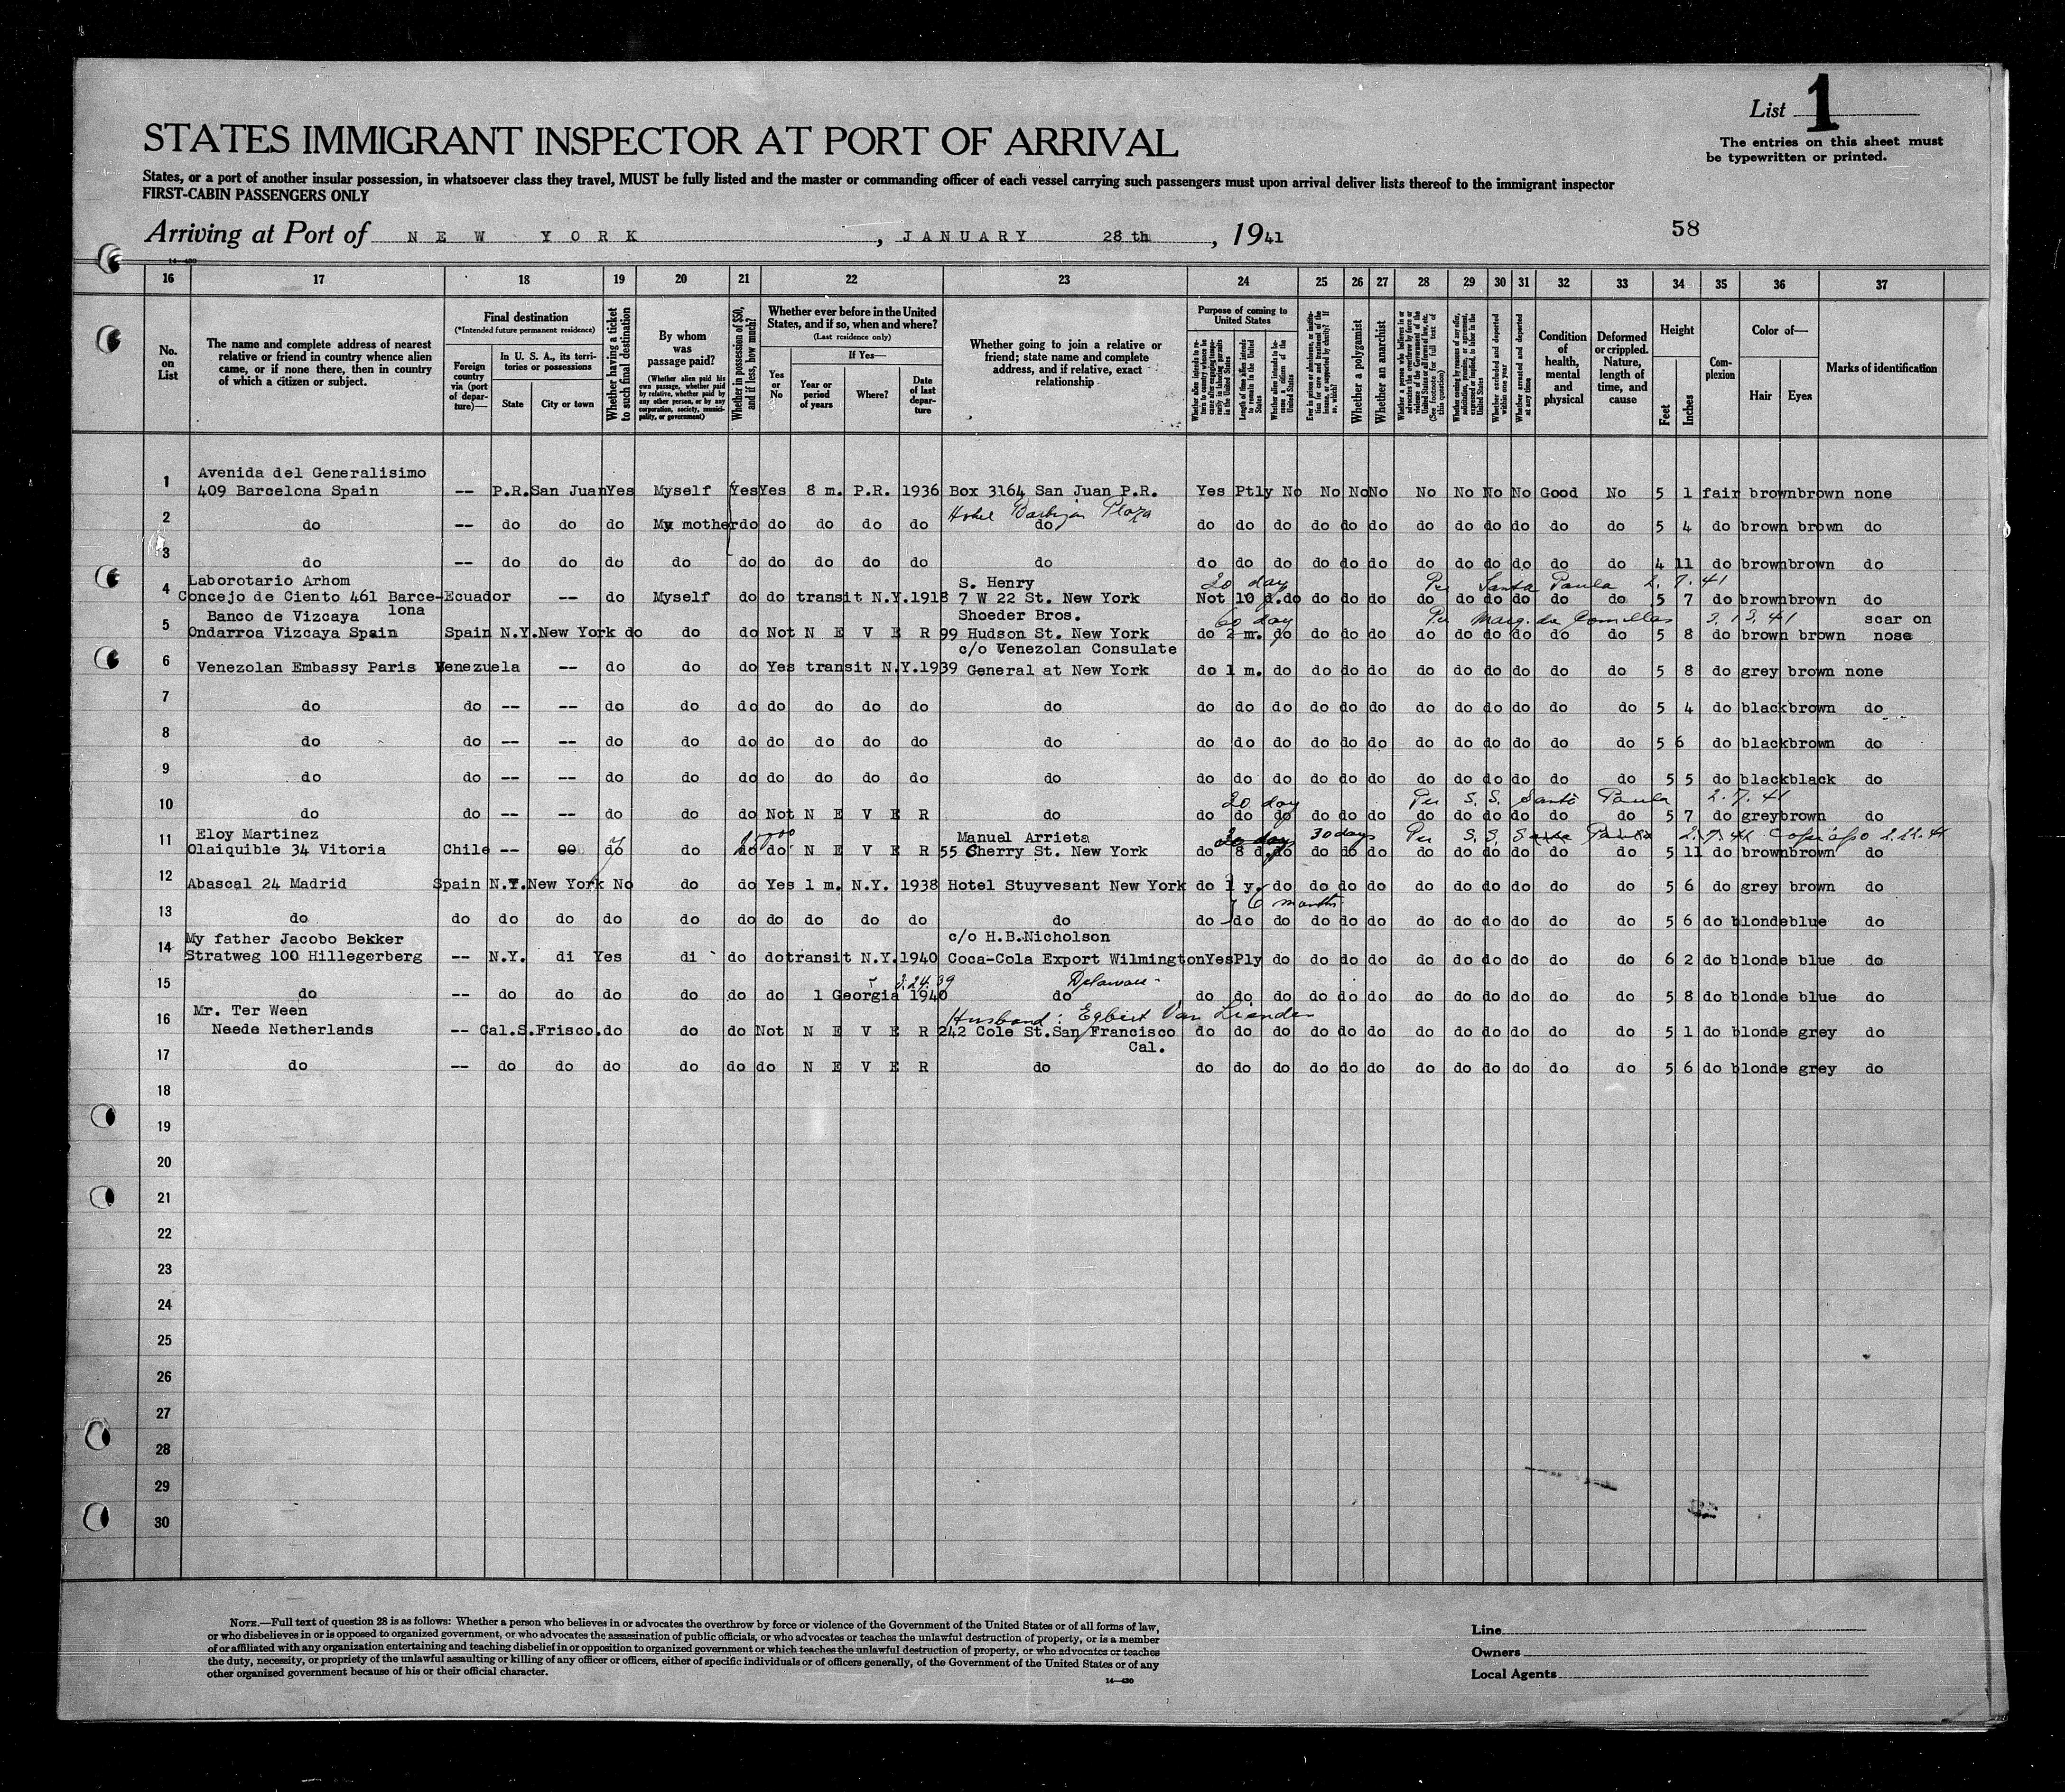 List 1
The entries on this sheet must
be typewritten or printed.
STATES IMMIGRANT INSPECTOR AT PORT OF ARRIVAL
States, or a port of another insular possession, in whatsoever class they travel, MUST be fully listed and the master or commanding officer of each vessel carrying such passengers must upon arrival deliver lists thereof to the immigrant inspector
FIRST-CABIN PASSENGERS ONLY
Arriving at Port of NEW YORK, JANUARY 28th, 1941
58
14-430
16 17 18 19 20 21 22 23 24 25 26 27 28 29 30 31 32 33 34 35 36 37
No. on List
The name and complete address of nearest relative or friend in country whence alien came, or if none there, then in country of which a citizen or subject.
Final destination
(*Intended future permanent residence)
Foreign country via (port of departure)—
In U. S. A., its territories or possessions
State
City or town
Whether having a ticket to such final destination
By whom was passage paid?
(Whether alien paid his own passage, whether paid by relative, whether paid by any other person, or by any corporation, society, municipality, or government)
Whether in possession of $50, and if less, how much?
Whether ever before in the United States, and if so, when and where?
(Last residence only)
Yes or No
If Yes—
Year or period of years
Where?
Date of last departure
Whether going to join a relative or friend; state name and complete address, and if relative, exact relationship
Purpose of coming to United States
Length of time alien intends to remain in the United States
Whether alien intends to become a citizen of the United States
Whether a polygamist
Whether an anarchist
Whether excluded and deported within one year
Whether arrested and deported at any time
Condition of health, mental and physical
Deformed or crippled. Nature, length of time, and cause
Height
Feet
Inches
Complexion
Color of—
Hair
Eyes
Marks of identification
1 Avenida del Generalisimo
409 Barcelona Spain -- P.R. San Juan Yes Myself Yes Yes 8 m. P.R. 1936 Box 3164 San Juan P.R. Yes Ptly No No No No No No No No Good No 5 1 fair brown brown none
Hotel Plaza
2 do -- do do do My mother do do do do do do do do do do do do do do do do do do 5 4 do brown brown do
3 do -- do do do do do do do do do do do do do do do do do do do do do do 4 11 do brown brown do
4 Laborotario Arhom S. Henry 20 day Per Santa Paula 2.7.41
Concejo de Ciento 461 Barce-lona Ecuador -- do Myself do do transit N.Y. 1918 7 W 22 St. New York Not 10 d. do do do do do do do do do do 5 7 do brown brown do
5 Banco de Vizcaya Shoeder Bros. 60 day Per Marq. de Comillas scar on
Ondarroa Vizcaya Spain Spain N.Y. New York do do do Not NEVER 99 Hudson St. New York do 2 m. do do do do do do do do do do 5 8 do brown brown nose
6 c/o Venezolan Consulate
Venezolan Embassy Paris Venezuela -- do do do Yes transit N.Y. 1939 General at New York do 1 m. do do do do do do do do do do 5 8 do grey brown none
7 do do -- -- do do do do do do do do do do do do do do do do do do do do 5 4 do black brown do
8 do do -- -- do do do do do do do do do do do do do do do do do do do do 5 6 do black brown do
9 do do -- -- do do do do do do do do do do do do do do do do do do do do 5 5 do black black do
20 day Per S.S. Santa Paula 2.7.41
10 do do -- -- do do do Not NEVER do do do do do do do do do do do do do 5 7 do grey brown do
11 Eloy Martinez Manuel Arrieta 20 day 30 days Per S.S. Santa Paula 2.7.41 Copiapo 2.22.41
Olaiquible 34 Vitoria Chile -- do do do do do NEVER 55 Cherry St. New York do 8 d. do do do do do do do do do do 5 11 do brown brown do
12 Abascal 24 Madrid Spain N.Y. New York No do do Yes 1 m. N.Y. 1938 Hotel Stuyvesant New York do 1 y. do do do do do do do do do do 5 6 do grey brown do
6 months
13 do do do do do do do do do do do do do do do do do do do do do do do do 5 6 do blonde blue do
14 My father Jacobo Bekker c/o H.B.Nicholson
Stratweg 100 Hillegerberg -- N.Y. di Yes di do do transit N.Y. 1940 Coca-Cola Export Wilmington Yes Ply do do do do do do do do do do 6 2 do blonde blue do
3.24.39 Delaware
15 do -- do do do do do do 1 Georgia 1940 do do do do do do do do do do do do do 5 8 do blonde blue do
16 Mr. Ter Ween Husband: Egbert Van
Neede Netherlands -- Cal. S.Frisco. do do do Not NEVER 242 Cole St. San Francisco do do do do do do do do do do do do 5 1 do blonde grey do
Cal.
17 do -- do do do do do do NEVER do do do do do do do do do do do do do 5 6 do blonde grey do
18
19
20
21
22
23
24
25
26
27
28
29
30
NOTE.—Full text of question 28 is as follows: Whether a person who believes in or advocates the overthrow by force or violence of the Government of the United States or of all forms of law,
or who disbelieves in or is opposed to organized government, or who advocates the assassination of public officials, or who advocates or teaches the unlawful destruction of property, or is a member
of or affiliated with any organization entertaining and teaching disbelief in or opposition to organized government or which teaches the unlawful destruction of property, or who advocates or teaches
the duty, necessity, or propriety of the unlawful assaulting or killing of any officer or officers, either of specific individuals or of officers generally, of the Government of the United States or of any
other organized government because of his or their official character.
14-430
Line
Owners
Local Agents